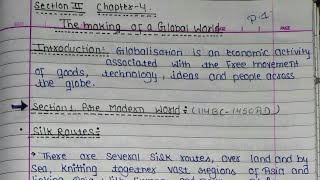 Section III Chapter-4.
P.1
The making of a Global World
Introduction: Globalisation is an economic activity
associated with the free movement
of goods, technology, ideas and people across
the globe.
Section 1 Pre Modern World: (114BC-1450AD)
Silk Routes:
• There are several silk routes, over land and by
Sea, knitting together vast regions of Asia and